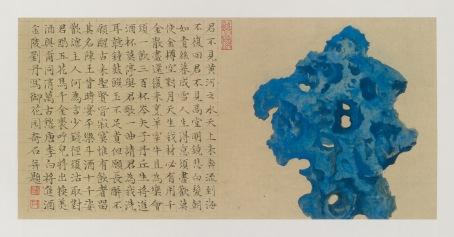 君不見黃河之水天上來奔流到海
不復回君不見高堂明鏡悲白髮朝
如青絲暮成雪人生得意須盡歡莫
使金樽空對月天生我材必有用千
金散盡還復來烹羊宰牛且為樂會
須一飲三百杯岑夫子丹丘生將進
酒杯莫停與君歌一曲請君為我
耳聽鐘鼓饌玉不足貴但願長醉不
願醒古來聖賢皆寂寞惟有飲者留
其名陳王昔時宴平樂斗酒十千恣
歡謔主人何為言少錢徑須沽取對
君酌五花馬千金裘呼兒將出換美
酒與爾同消萬古愁唐李白將進酒
金陵劉丹寫御花園奇石并題